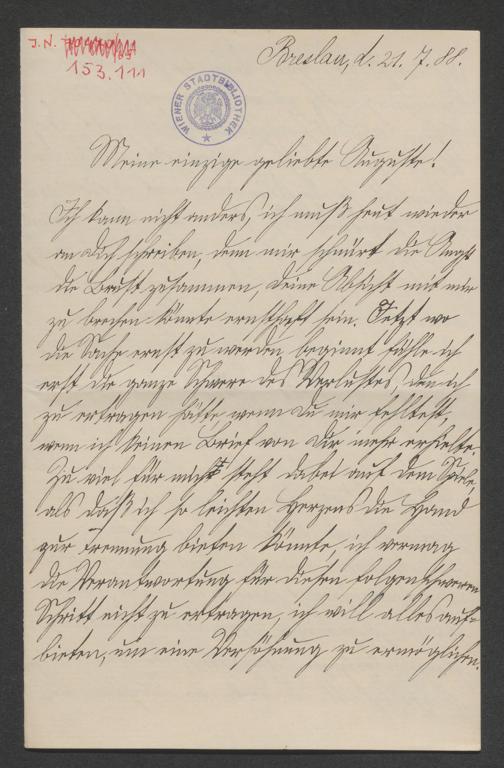 J.N.
153.111
WIENER STADTBIBLIOTHEK
Breslau, d. 21. 7. 88.
Meine einzige geliebte Auguste!
Ich kann nicht anders, ich muß heut wieder
an Dich schreiben, denn mir schnürt die Angst
die Brust zusammen, Deine Absicht mit mir
zu brechen könnte ernsthaft sein. Jetzt wo
die Sache ernst zu werden beginnt fühle ich
erst die ganze Schwere des Verlustes, den ich
zu ertragen hätte, wenn Du mir fehltest,
wenn ich keinen Brief von Dir mehr erhielte.
Zu viel für mich steht dabei auf dem Spiele,
als daß ich so leichten Herzens die Hand
zur Trennung bieten könnte, ich vermag
die Verantwortung für diesen folgenschweren
Schritt nicht zu ertragen, ich will alles auf-
bieten, um eine Versöhnung zu ermöglichen.